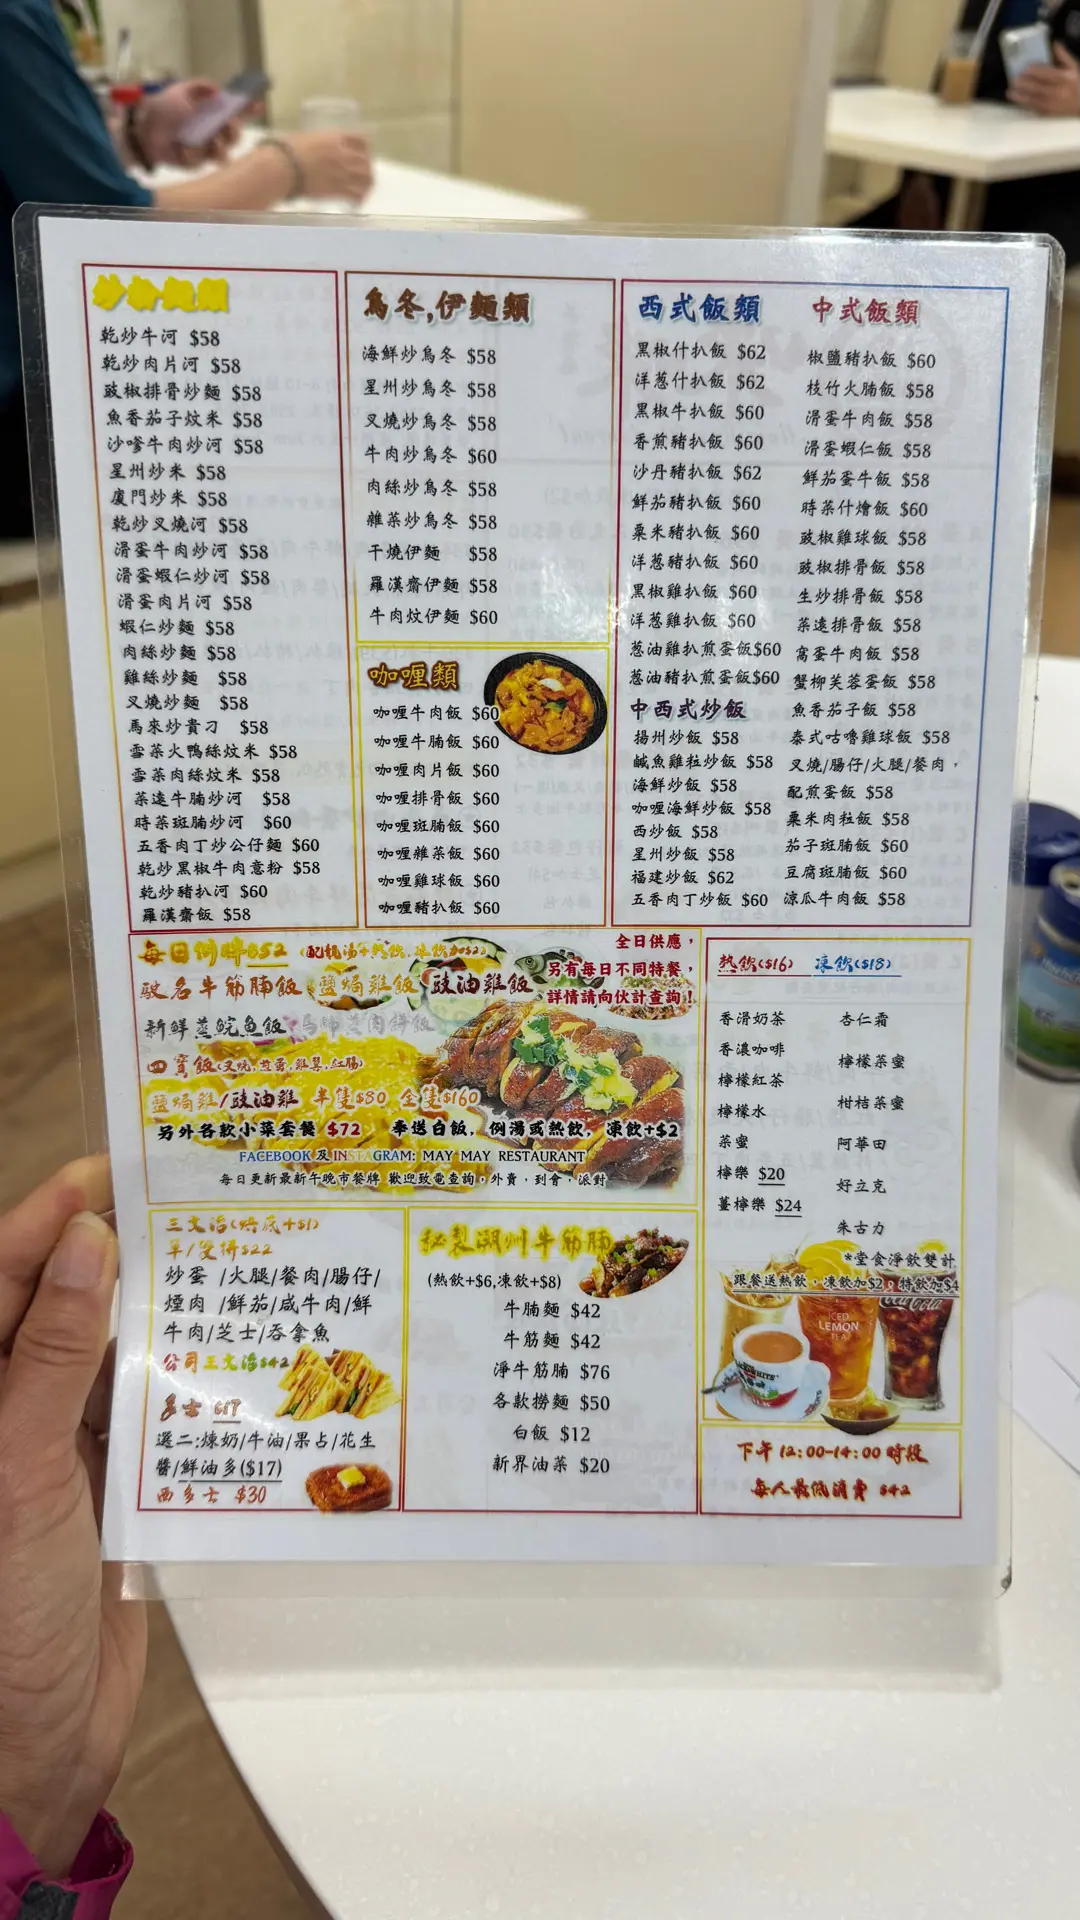 炒粉麵類
乾炒牛河 $58
乾炒肉片河 $58
豉椒排骨炒麵 $58
魚香茄子炆米 $58
沙嗲牛肉炒河 $58
星州炒米 $58
廈門炒米 $58
乾炒叉燒河 $58
滑蛋牛肉炒河 $58
滑蛋蝦仁炒河 $58
滑蛋肉片河 $58
蝦仁炒麵 $58
肉絲炒麵 $58
雞絲炒麵 $58
叉燒炒麵 $58
馬來炒貴刁 $58
雪菜火鴨絲炆米 $58
雪菜肉絲炆米 $58
菜遠牛腩炒河 $58
時菜斑腩炒河 $60
五香肉丁炒公仔麵 $60
乾炒黑椒牛肉意粉 $58
乾炒豬扒河 $60
羅漢齋飯 $58
烏冬,伊麵類
海鮮炒烏冬 $58
星州炒烏冬 $58
叉燒炒烏冬 $58
牛肉炒烏冬 $60
肉絲炒烏冬 $58
雜菜炒烏冬 $58
干燒伊麵 $58
羅漢齋伊麵 $58
牛肉炆伊麵 $60
咖喱類
咖喱牛肉飯 $60
咖喱牛腩飯 $60
咖喱肉片飯 $60
咖喱排骨飯 $60
咖喱斑腩飯 $60
咖喱雜菜飯 $60
咖喱雞球飯 $60
咖喱豬扒飯 $60
西式飯類
黑椒什扒飯 $62
洋葱什扒飯 $62
黑椒牛扒飯 $60
香煎豬扒飯 $60
沙丹豬扒飯 $62
鮮茄豬扒飯 $60
粟米豬扒飯 $60
洋葱豬扒飯 $60
黑椒雞扒飯 $60
洋葱雞扒飯 $60
葱油雞扒煎蛋飯$60
葱油豬扒煎蛋飯$60
中西式炒飯
揚州炒飯 $58
鹹魚雞粒炒飯 $58
海鮮炒飯 $58
咖喱海鮮炒飯 $58
西炒飯 $58
星州炒飯 $58
福建炒飯 $62
五香肉丁炒飯 $60
中式飯類
椒鹽豬扒飯 $60
枝竹火腩飯 $58
滑蛋牛肉飯 $58
滑蛋蝦仁飯 $58
鮮茄蛋牛飯 $58
時菜什燴飯 $60
豉椒雞球飯 $58
豉椒排骨飯 $58
生炒排骨飯 $58
菜遠排骨飯 $58
窩蛋牛肉飯 $58
蟹柳芙蓉蛋飯 $58
魚香茄子飯 $58
泰式咕嚕雞球飯 $58
叉燒/腸仔/火腿/餐肉，
配煎蛋飯 $58
粟米肉粒飯 $58
茄子斑腩飯 $60
豆腐斑腩飯 $60
涼瓜牛肉飯 $58
每日例牌$52 (配靚湯+熱飲,凍飲加$2)
全日供應，
另有每日不同特餐，
詳情請向伙計查詢！
馭名牛筋腩飯 鹽焗雞飯 豉油雞飯
新鮮蒸鯇魚飯 馬蹄蒸肉餅飯
四寶飯(叉燒,煎蛋,雞翼,紅腸)
鹽焗雞/豉油雞 半隻$80 全隻$160
另外各款小菜套餐 $72 奉送白飯, 例湯或熱飲, 凍飲+$2
FACEBOOK 及INSTAGRAM: MAY MAY RESTAURANT
每日更新最新午晚市餐牌 歡迎致電查詢，外賣，到會，派對
熱飲($16) 凍飲($18)
香滑奶茶
香濃咖啡
檸檬紅茶
檸檬水
菜蜜
檸樂 $20
薑檸樂 $24
杏仁霜
檸檬菜蜜
柑桔菜蜜
阿華田
好立克
朱古力
*堂食淨飲雙計
跟餐送熱飲，凍飲加$2，特飲加$4
ICED
LEMON
TEA
三文治(烘底+$1)
單/雙拼$22
炒蛋 /火腿/餐肉/腸仔/
煙肉 /鮮茄/咸牛肉/鮮
牛肉/芝士/吞拿魚
公司三文治$42
多士 $17
選二:煉奶/牛油/果占/花生
醬/鮮油多($17)
西多士 $30
秘製潮州牛筋腩
(熱飲+$6,凍飲+$8)
牛腩麵 $42
牛筋麵 $42
淨牛筋腩 $76
各款撈麵 $50
白飯 $12
新界油菜 $20
下午 12:00-14:00 時段
每人最低消費 $42